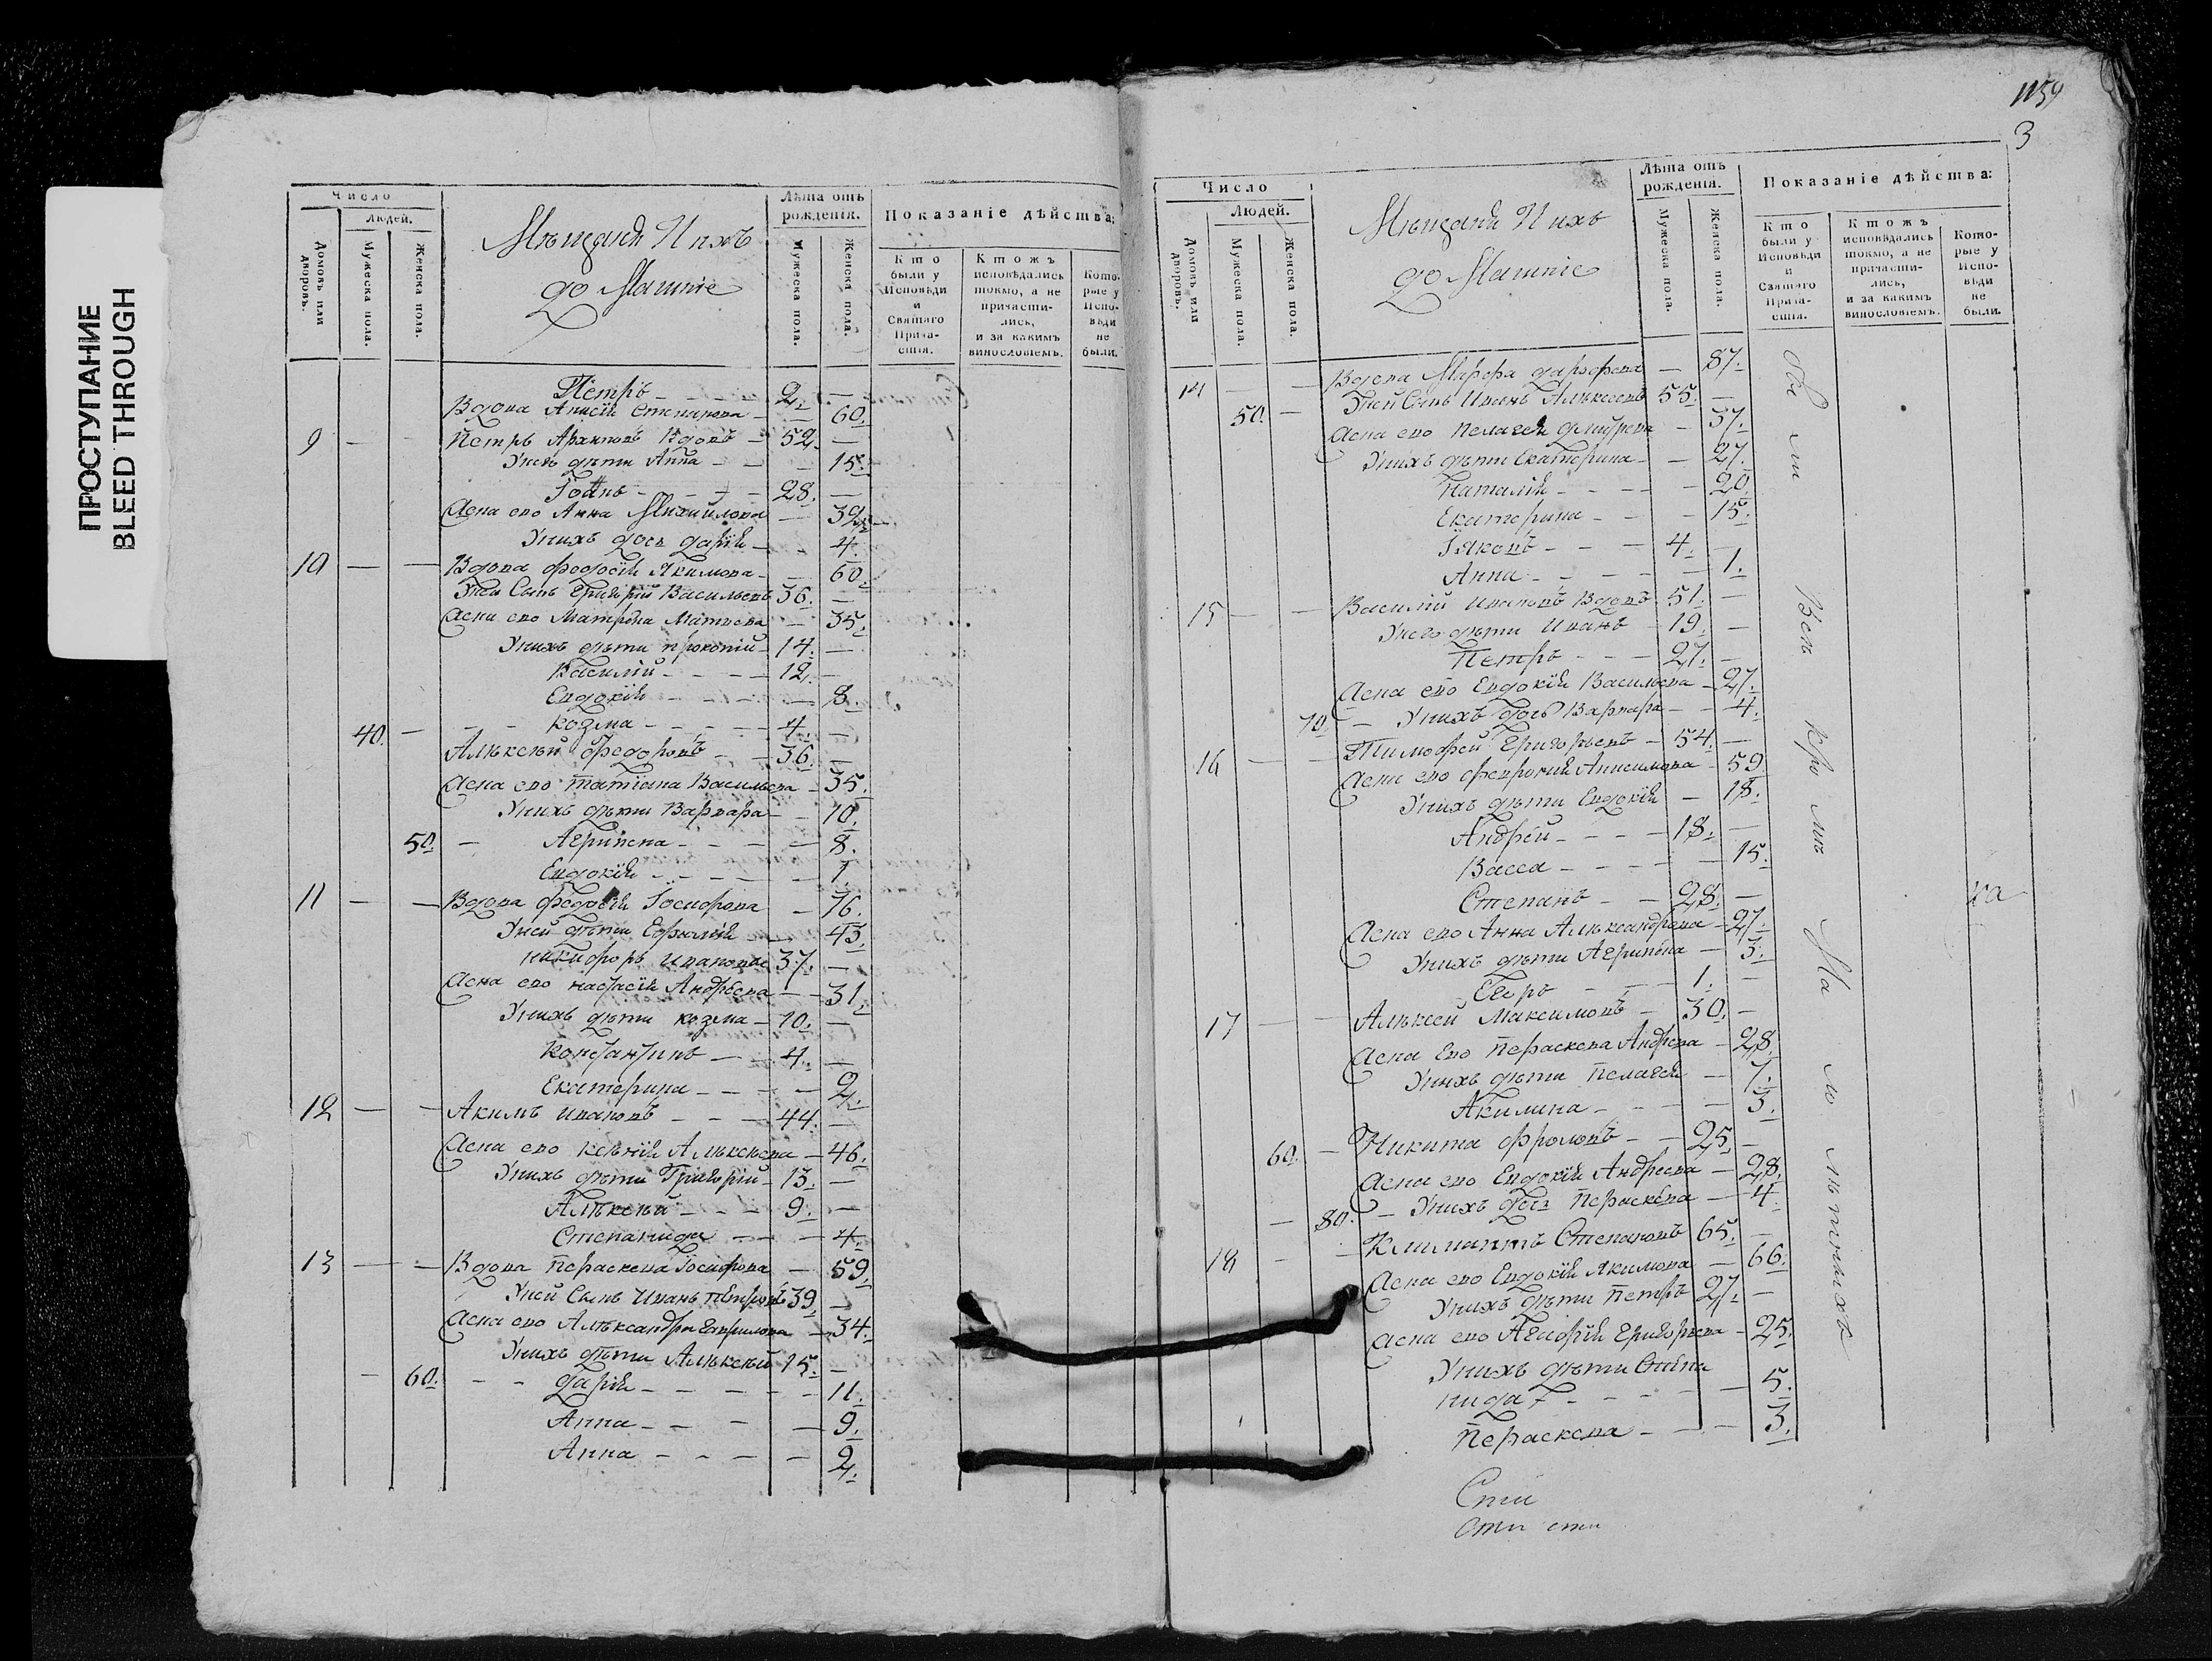 ПРОСТУПАНИЕ
BLEED THROUGH
Число
Людей.
Домовъ или дворовъ.
Мужеска пола.
Женска пола.
Мѣщанѣ И ихъ
домашніе
Лѣта отъ рожденія.
Мужеска пола.
Женска пола.
Показаніе дѣйства:
Кто были у Исповѣди и Святаго Прича-стія.
Ктожъ исповѣдались токмо, а не причасти-лись, и за какимъ винословіемъ.
Кото-рые у Испо-вѣди не были.
Петръ - 2. -
Вдова Анисія Степанова - 60.
9 - Петръ Архиповъ Вдовъ - 52. -
Унего дѣти Анна - - 15.
Іоанъ - 28. -
Жена ево Анна Михайлова - 32.
Унихъ дочь Дарія - 4.
10 - - Вдова Феодосія Якимова - 60.
Уней Сынъ Григорій Васильевъ 36. -
Жена ево Матрона Матвева - 35.
Унихъ дѣти Прокопій - 14. -
Василій - 12. -
Евдокія - 8.
40. - Козма - 4. -
Алѣксѣй Федоровъ - 36. -
Жена ево Татіана Васильева - 35.
Унихъ дѣти Варвара - 10.
50. - Агрипена - 8.
Евдокія - 1.
11 - - Вдова Федосія Іосифова - 76.
Уней дѣти Ефимія - 43.
Никифоръ Ивановъ 37. -
Жена ево Настасія Андреева - 31.
Унихъ дѣти Козма - 10. -
Константинъ - 4. -
Екатерина - 2.
12 - - Акимъ Ивановъ - 44. -
Жена ево Ксѣнія Алѣксѣева - 46.
Унихъ дѣти Григорій - 13. -
Алѣксѣй - 9. -
Степанида - 4.
13 - - Вдова Пераскева Іосифова - 59.
Уней Сынъ Иванъ Петровъ 39. -
Жена ево Алѣксандра Гаврилова - 34.
Унихъ дѣти Алѣксѣй 15. -
- 60. - Дарія - 11.
Анна - 9.
Анна - 2.
1159
3
Число
Людей.
Домовъ или дворовъ.
Мужеска пола.
Женска пола.
Мѣщанѣ И ихъ
домашніе
Лѣта отъ рожденія.
Мужеска пола.
Женска пола.
Показаніе дѣйства:
Кто были у Исповѣди и Святаго Прича-стія.
Ктожъ исповѣдались токмо, а не причасти-лись, и за какимъ винословіемъ.
Кото-рые у Испо-вѣди не были.
14 - - Вдова Марфа - 87.
50. - Уней Сынъ Иванъ Алѣксеевъ 55. -
Жена ево Пелагея Дмитрева - 37.
Унихъ дѣти Екатерина - 27.
Наталія - 20.
Екатерина - 15.
Іяковъ - 4. -
Анна - 1.
15 - - Василій Ивановъ Вдовъ 51. -
Унего дѣти Иванъ - 19. -
Петръ - 27. -
Жена ево Евдокія Васильева - 27.
70. - Унихъ дочь Варвара - 4.
16 - - Тимофей Григорьевъ - 54. -
Жена ево Феврония Анисимова - 59
Унихъ дѣти Евдокія - 18.
Андрей - 18. -
Васса - 15.
Степанъ - 28. -
Жена ево Анна Алѣксандрова - 27.
Унихъ дѣти Агрипена - 3.
Егоръ - 1. -
17 - - Алѣксей Максимовъ - 30. -
Жена Ево Пераскева Андрева - 28.
Унихъ дѣти Пелагея - 7.
Акилина - 3.
60. - Никита Фроловъ - 25 -
Жена ево Евдокія Андреева - 28.
- 80. - Унихъ дочь Пераскева - 4.
18 - - Климантъ Степановъ 65. -
Жена ево Евдокія Акимова - 66.
Унихъ дѣти Петръ 27. -
Жена ево Агафія Григорьева - 25.
Унихъ дѣти Степа
нида - 5.
Пераскева - 3.
Всѣ кромѣ Малолѣтнихъ